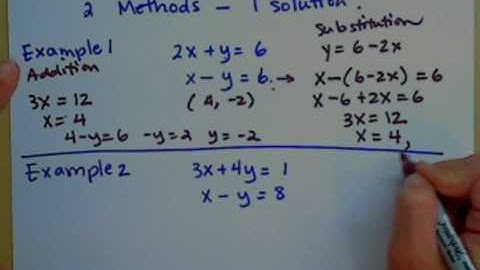 2 Methods - 1 solution.
Example 1
Addition
2x + y = 6
x - y = 6 →
(4, -2)
3x = 12
x = 4
4 - y = 6 -y = 2 y = -2
Substitution
y = 6 - 2x
x - (6 - 2x) = 6
x - 6 + 2x = 6
3x = 12
x = 4,
Example 2
3x + 4y = 1
x - y = 8